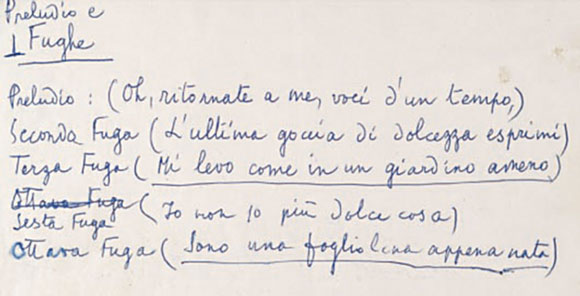 Preludio e
Fughe
Preludio : (Oh, ritornate a me, voci d'un tempo,)
Seconda Fuga (L'ultima goccia di dolcezza esprimi)
Terza Fuga (Mi levo come in un giardino ameno)
Ottava Fuga
Sesta Fuga (Io non so più dolce cosa)
Ottava Fuga (Sono una fogliolina appena nata)